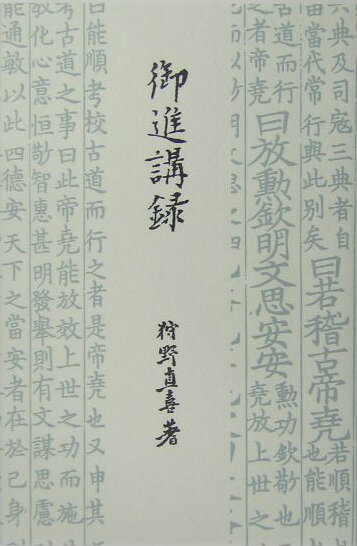 典及司寇三典者自
當代常行與此別矣
曰若稽古帝堯
若順稽
也能順
之者帝堯
古道而行
曰放勳欽明文思安安
勳功欽敬也
堯放上世之
御進講録
狩野直喜著
曰能順考校古道而行之者是帝堯也又申其
考古道之事曰此帝堯能放效上世之功而施
教化心意恒敬智惠甚明發舉則有文謀思慮
能通敏以此四德安天下之當安者在於己身